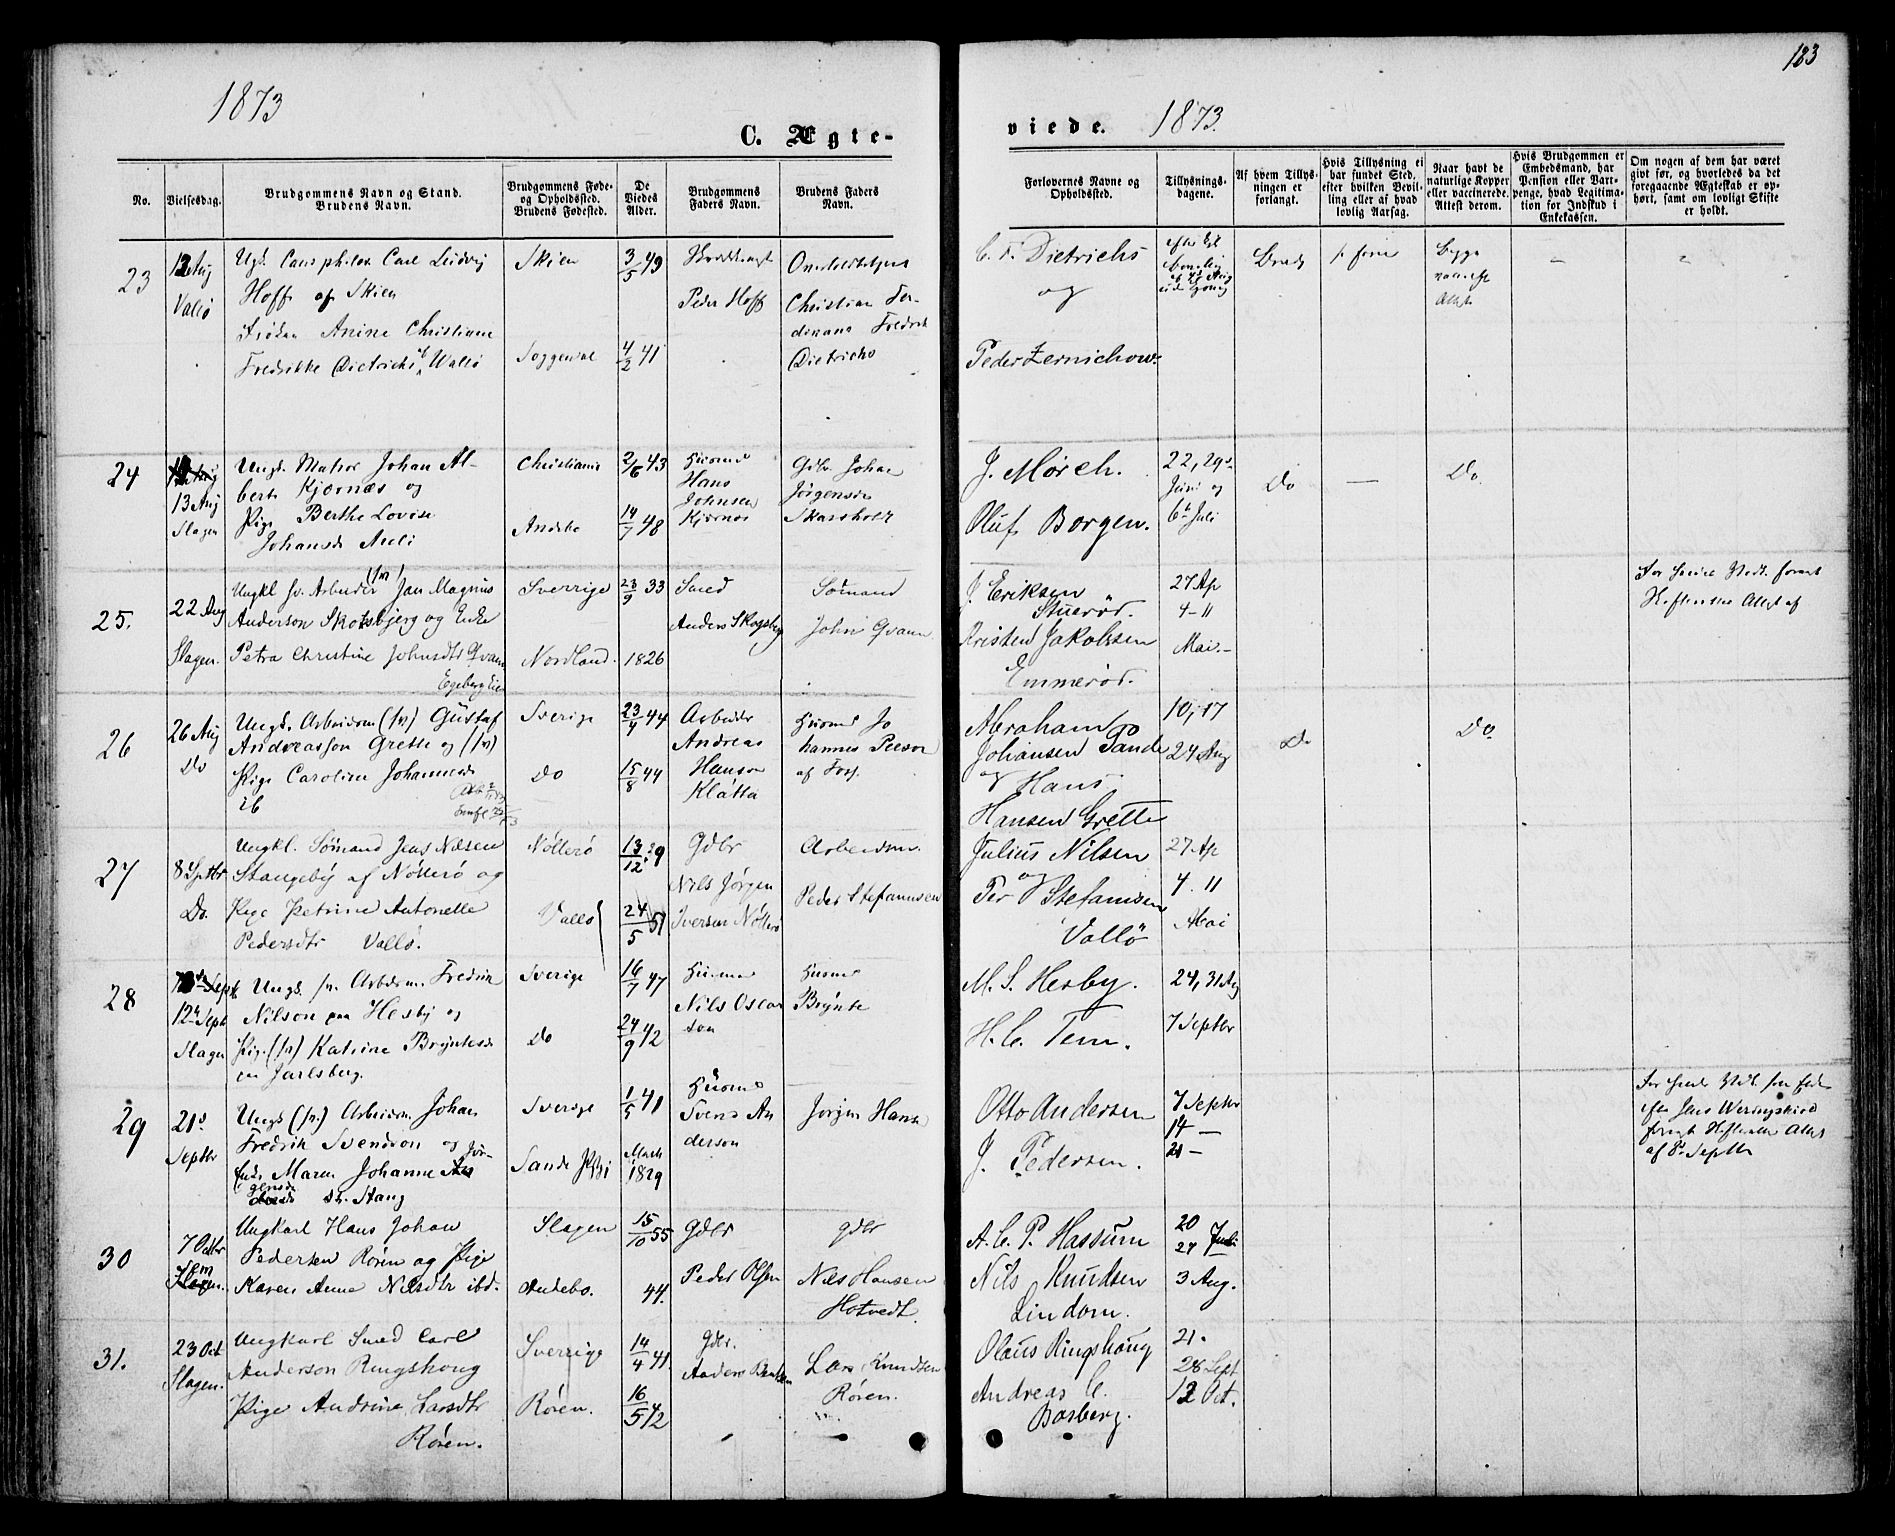 183
1873
C. Ægte-
viede. 1873.
No.
Vielsesdag.
Brudgommens Navn og Stand.
Brudens Navn.
Brudgommens Føde-
og Opholdssted.
Brudens Fødested.
De
Viedes
Alder.
Brudgommens
Faders Navn.
Brudens Faders
Navn.
Forlovernes Navne og
Opholdssted.
Tillysnings-
dagene.
Af hvem Tillys-
ningen er
forlangt.
Hvis Tillysning ei
har fundet Sted,
efter hvilken Bevil-
ling eller af hvad
lovlig Aarsag.
Naar havt de
naturlige Kopper
eller vaccinerede.
Attest derom.
Hvis Brudgommen er
Embedsmand, har
Pension eller Vart-
penge, hvad Legitima-
tion for Indskud i
Enkekassen.
Om nogen af dem har været
givt før, og hvorledes da det
foregaaende Ægteskab er op-
hørt, samt om lovligt Skifte
er holdt.
23
12 Aug
Vallø
Carl Ludvig
Hoff af Skien
Frøken Anine Christiane
Fredrikke Dietrichs Walló
Skien
3/5 49
4/2 41
Peder Hoff
Christian Fer-
dinand Fredrik
Dietrichs
C. F. Dietrichs
og
Peder Zernichow.
24
13 Aug
Slagen
Ungk. Matros Johan Al-
bert Kjørnæs og
Pige Berthe Lovise
Johansd. Auli
Christiania
Andebo
2/6 43
14/7 48
Husmd
Hans
Johnsen
Kjørnæs
Gdbr. Johan
Jørgensen
J. Mørch.
Oluf Borgen.
22, 29
Juni og
6t Juli
Do
—
Do
25.
22 Aug
Slagen.
Ungkl sv. Arbeider (fr) Jan Magnus
Anderson Skotsbjerg og Enke
Petra Christine Johnsdtr Qvam
Sverrige
Nordland.
23/9 33
1826
Smed
Anders Skogsberg
Sømand
John Qvam
J. Eriksen
Stuerød.
Kristen Jakobsen
Emmerød.
27 Ap
4 - 11
Mai. -
26
26 Aug
Do
Ungk. Arbeidsm (fr) Gustaf
Andreasson Grette og (fr)
Pige Caroline Johannesd.
ib
Sverige
Do
23/4 44
15/8 44
Arbeider
Andreas
Hanson
Klåtta
Husmd Jo
hannes Peeson
Abraham
Johansen Tande
og Hans
Hansen Grette
10, 17
24 Aug
Do
Do
27
8 Septbr
Do.
Ungkl. Sømand Jens Nilsen
Stangeby af Nøtterø og
Pige Petrine Antonette
Pedersdtr Vallø.
Nøtterø
Vallø
13/12 29
24/5 51
Gdbr
Nils Jørgen
Iversen Nøtterø
Arbeidsm.
Peder Stefanusen
Julius Nilsen
og
Per Stefansen
Vallö
27 Ap
4. 11
Mai
28
12te Sept
Slagen
Ungk. fr. Arbdsm. Fredrik
Nilson paa Hesby og
Pige (fr) Katrine Bryntesd.
Jarlsberg.
Sverige
Do
16/7 47
24/9 42
Husmd
Nils Oscar
son
Husmd
Brynte
M. S. Hesby.
H. C. Tem.
24, 31 Aug
7 Septbr
29
21s
Septbr
Ungk (fr) Arbeidsm. Johan
Fredrik Svendson og
Enke Maren Johanne
Stang
Sverige
Sande
1/5 41
1829
Husmd
Svens An
derson
Jørgen Hansen
Otto Andersen
J. Pedersen.
7 Septbr
14 —
21 —
30
7 Octbr
Sem
Slagen.
Ungkarl Hans Johan
Pedersen Røren og Pige
Karen Anne Nilsdtr ibd.
Slagen
Andebo.
15/10 55
44.
Gdbr
Peder Olsen
gdbr
Nils Hansen
Hotvedt.
A. C. P. Hassum
Nils Knudsen
Lindom.
20
27 Juli
3 Aug.
31.
23 Oct
Slagen.
Ungkarl Smed Carl
Anderson Ringshoug
Pige Andrine Larsdtr
Røren.
Sverrige
Røren.
14/4 41
16/5 42
Gdbr.
Lars Knudsen
Røren.
Olaus Ringshoug
Andreas C.
Basberg.
21.
28 Sept
12 Oct.